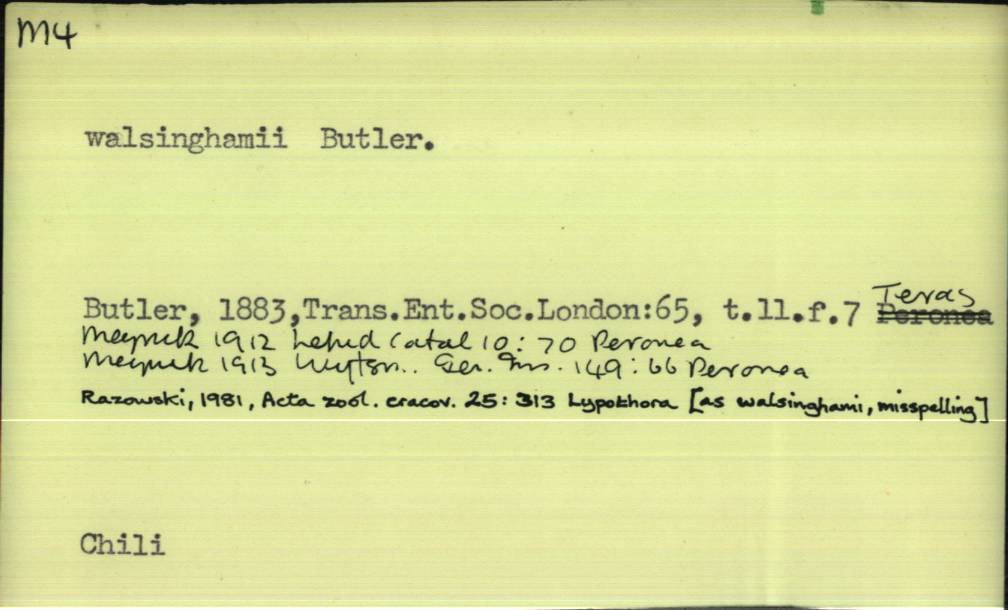 M4
walsinghamii Butler.
Teras
Butler, 1883,Trans.Ent.Soc.London:65, t.11.f.7 Peronea
Meyrick 1912 Lepid Catal 10: 70 Peronea
Meyrick 1913 Wytsm.. Gen. Ins. 149: 66 Peronea
Razowski, 1981, Acta zool. cracov. 25: 313 Lypothora [as walsinghami, misspelling]
Chili